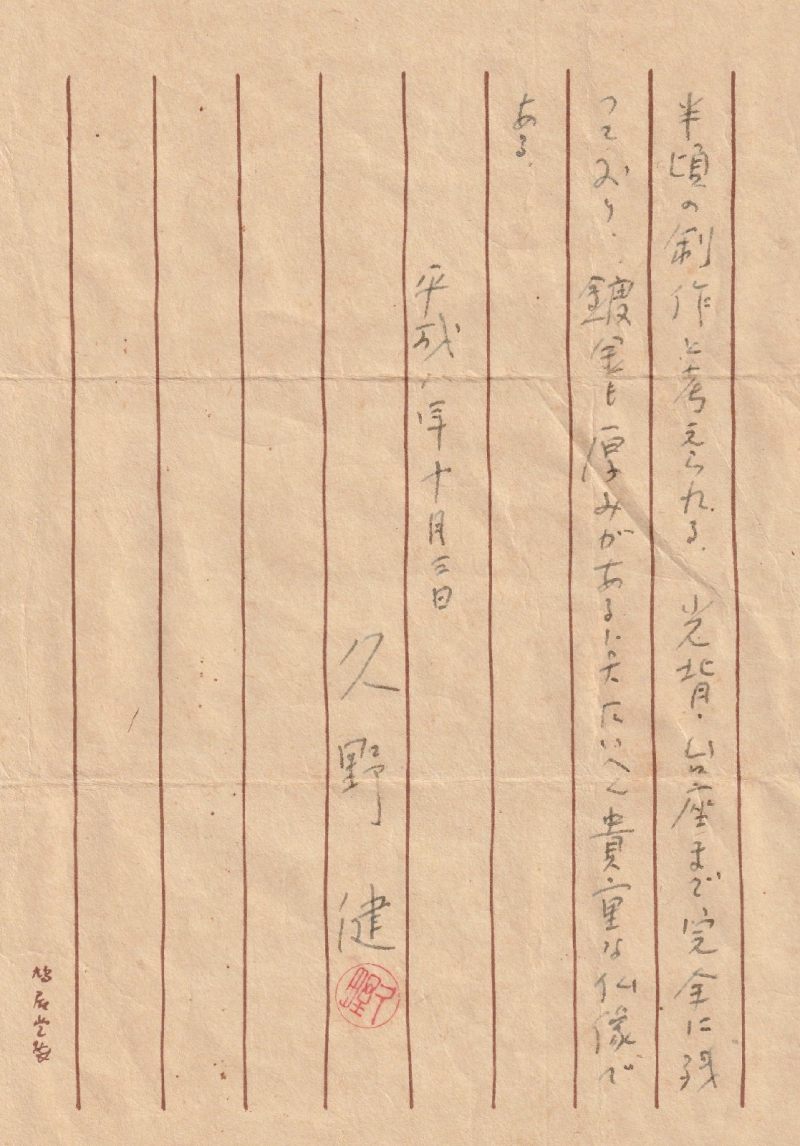 半頃の制作と考えられる。光背・台座まで完全に残
っており、鍍金も厚みがあるに大たいへん貴重な仏像で
ある。
平成八年十月三日
久野健
鳩居堂製